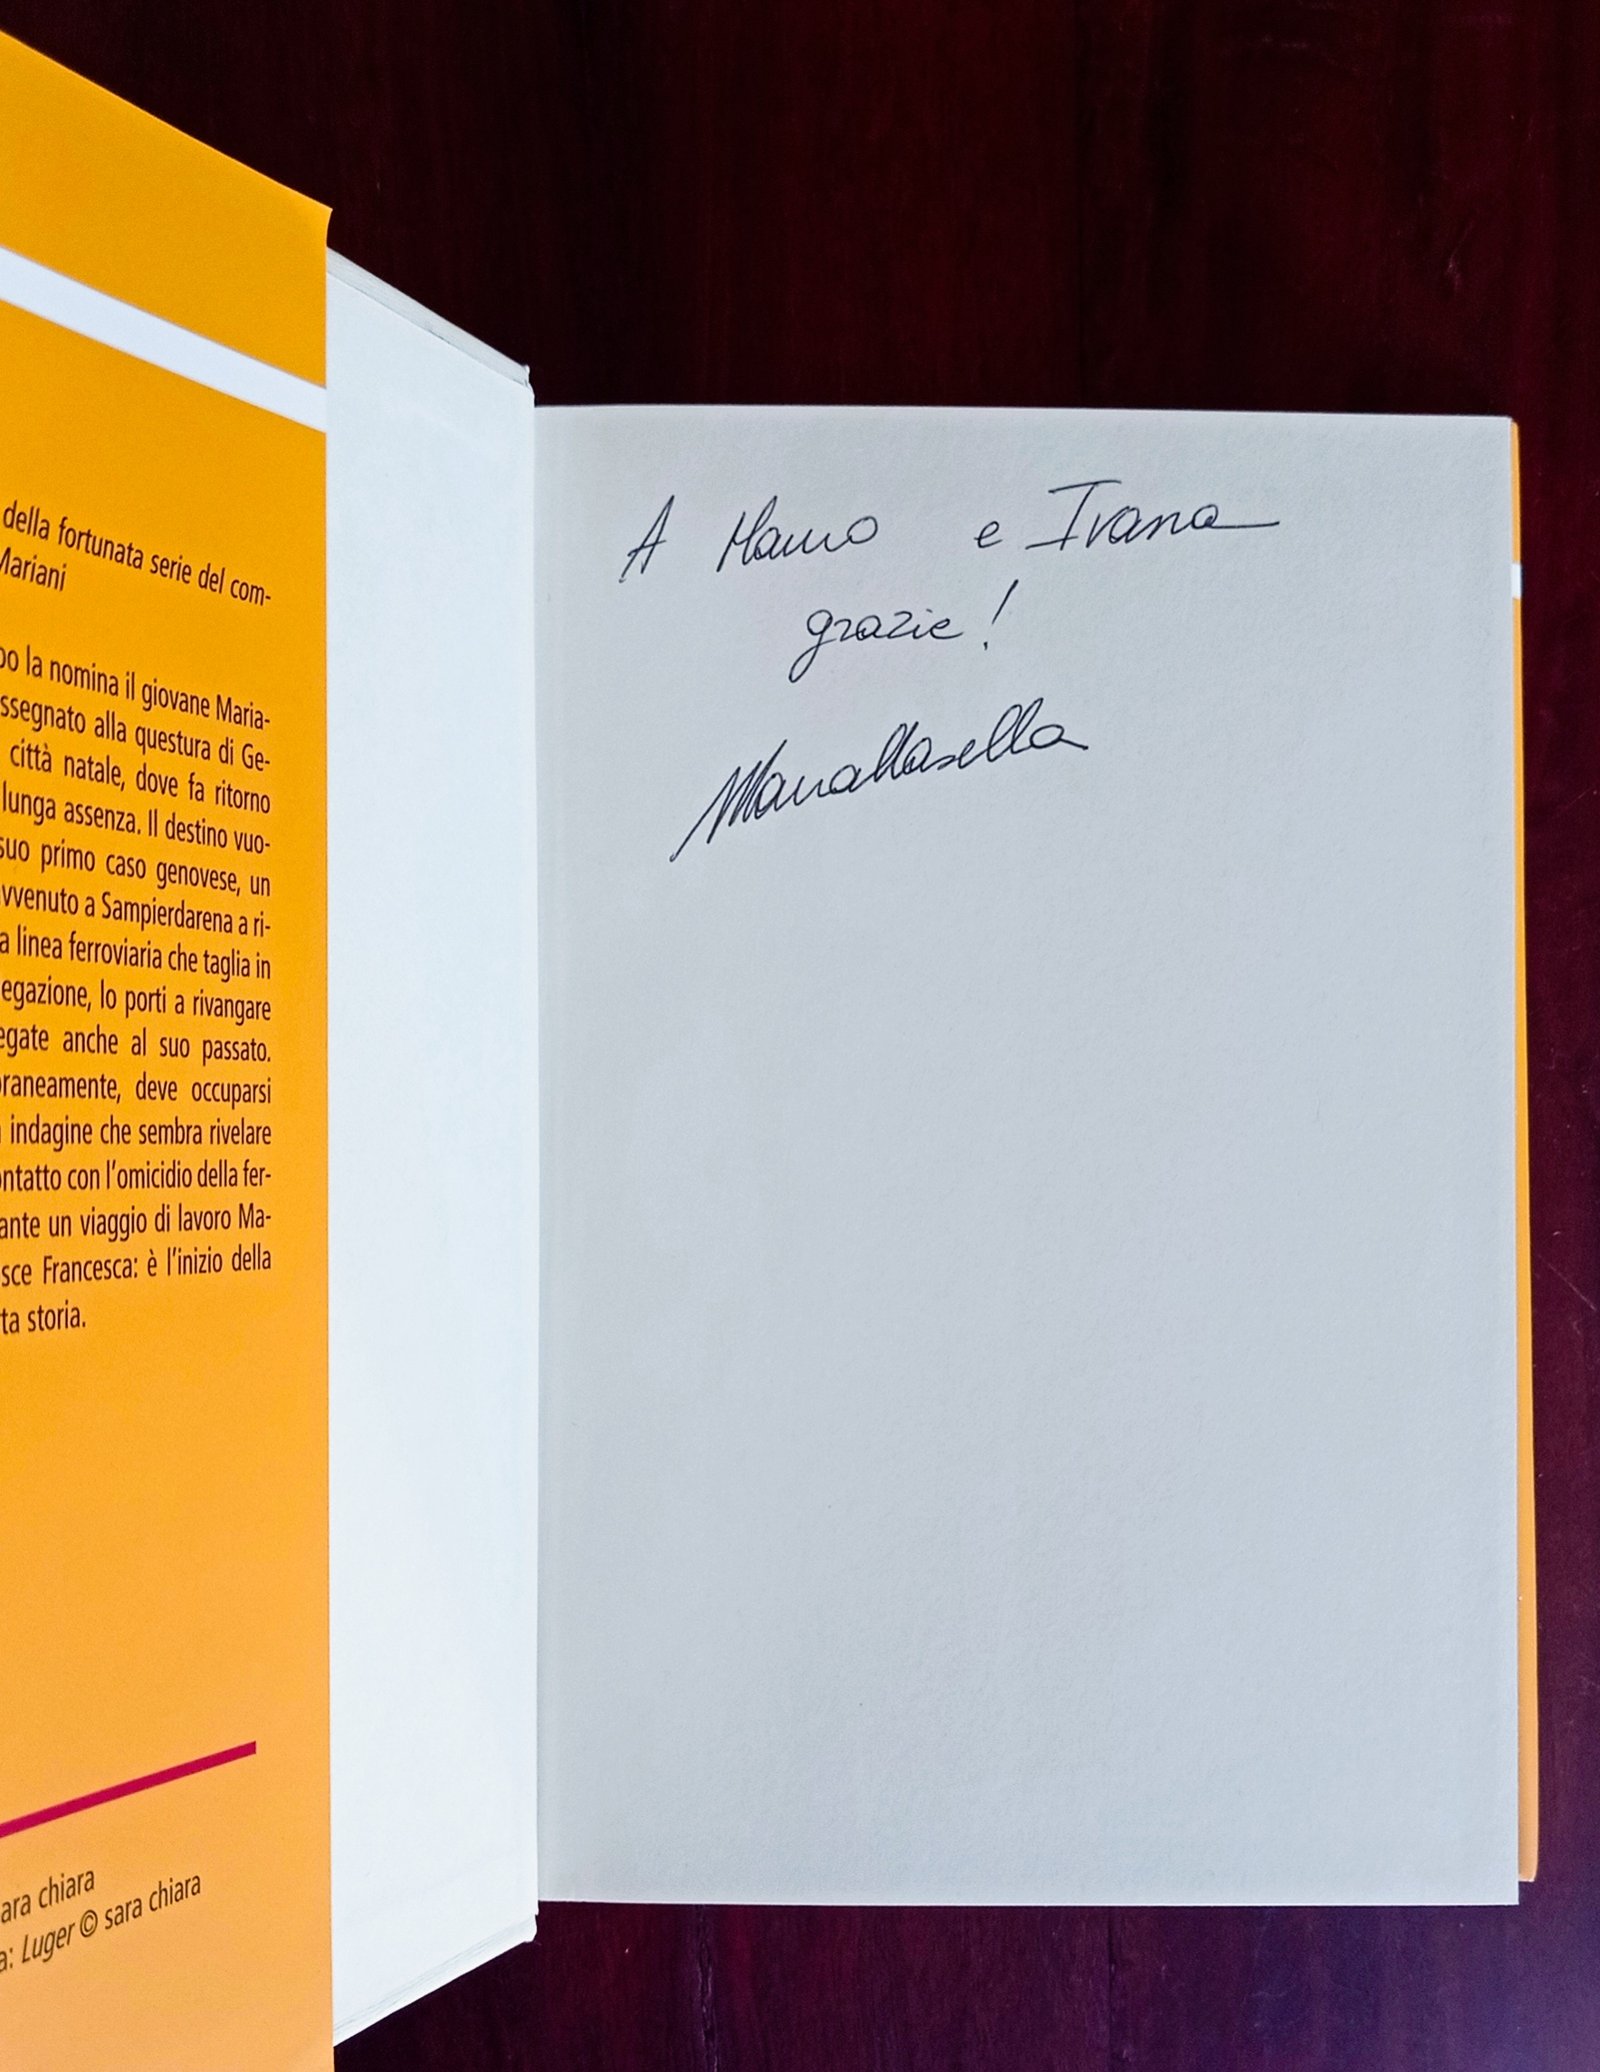 della fortunata serie del com-
Mariani
po la nomina il giovane Maria-
ssegnato alla questura di Ge-
città natale, dove fa ritorno
lunga assenza. Il destino vuo-
suo primo caso genovese, un
vvenuto a Sampierdarena a ri-
a linea ferroviaria che taglia in
egazione, lo porti a rivangare
egate anche al suo passato.
raneamente, deve occuparsi
indagine che sembra rivelare
ontatto con l'omicidio della fer-
ante un viaggio di lavoro Ma-
sce Francesca: è l'inizio della
ta storia.
ara chiara
a: Luger © sara chiara
A Mauro e Ivana
grazie!
Maria Masella